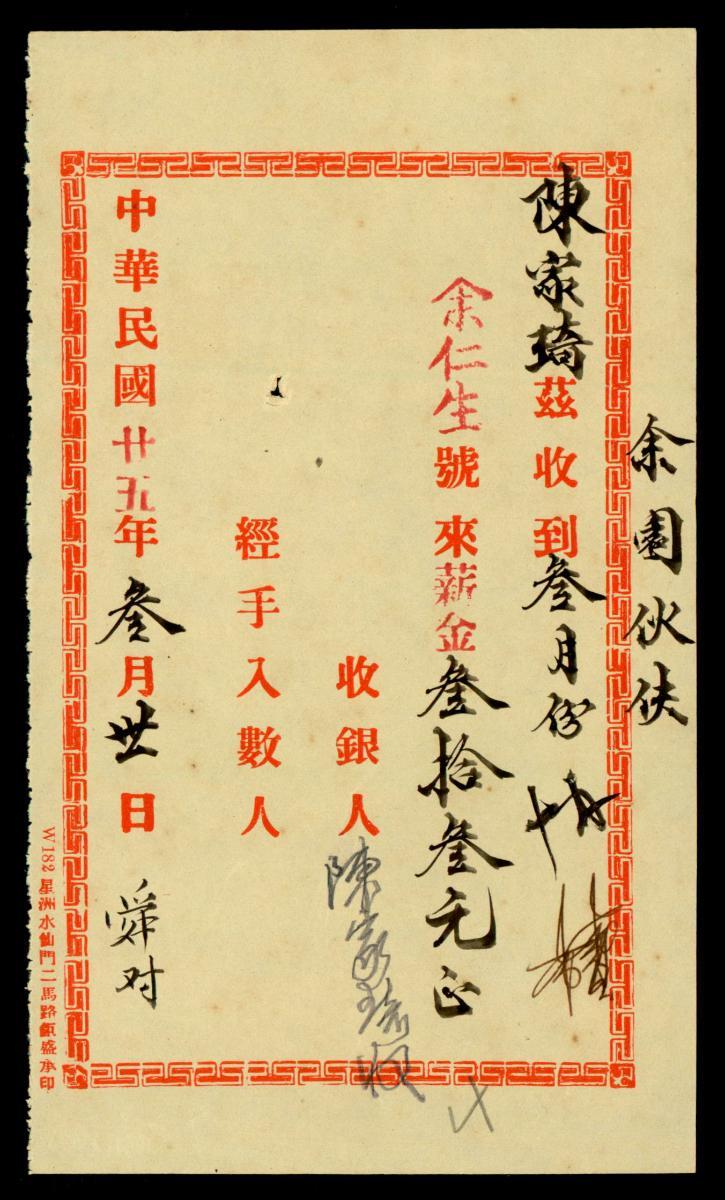 余園伙伕
陳家琦茲收到叁月份
余仁生號來薪金叁拾叁元正
收銀人陳家琦收
經手入數人
中華民國廿五年叁月卅日 舜对
W182 星洲水仙門二馬路領盛承印